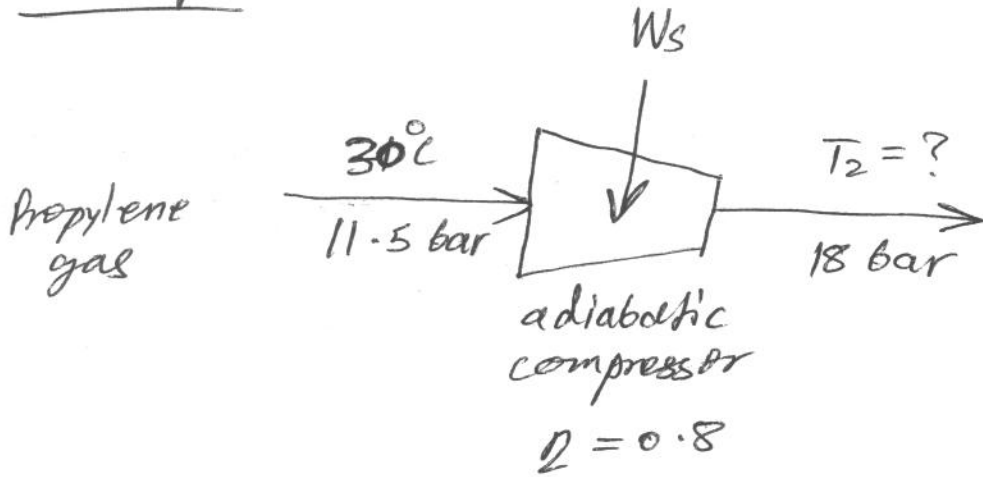 Ws
30°C
T₂ = ?
Propylene
gas
11.5 bar
18 bar
adiabatic
compressor
η = 0.8